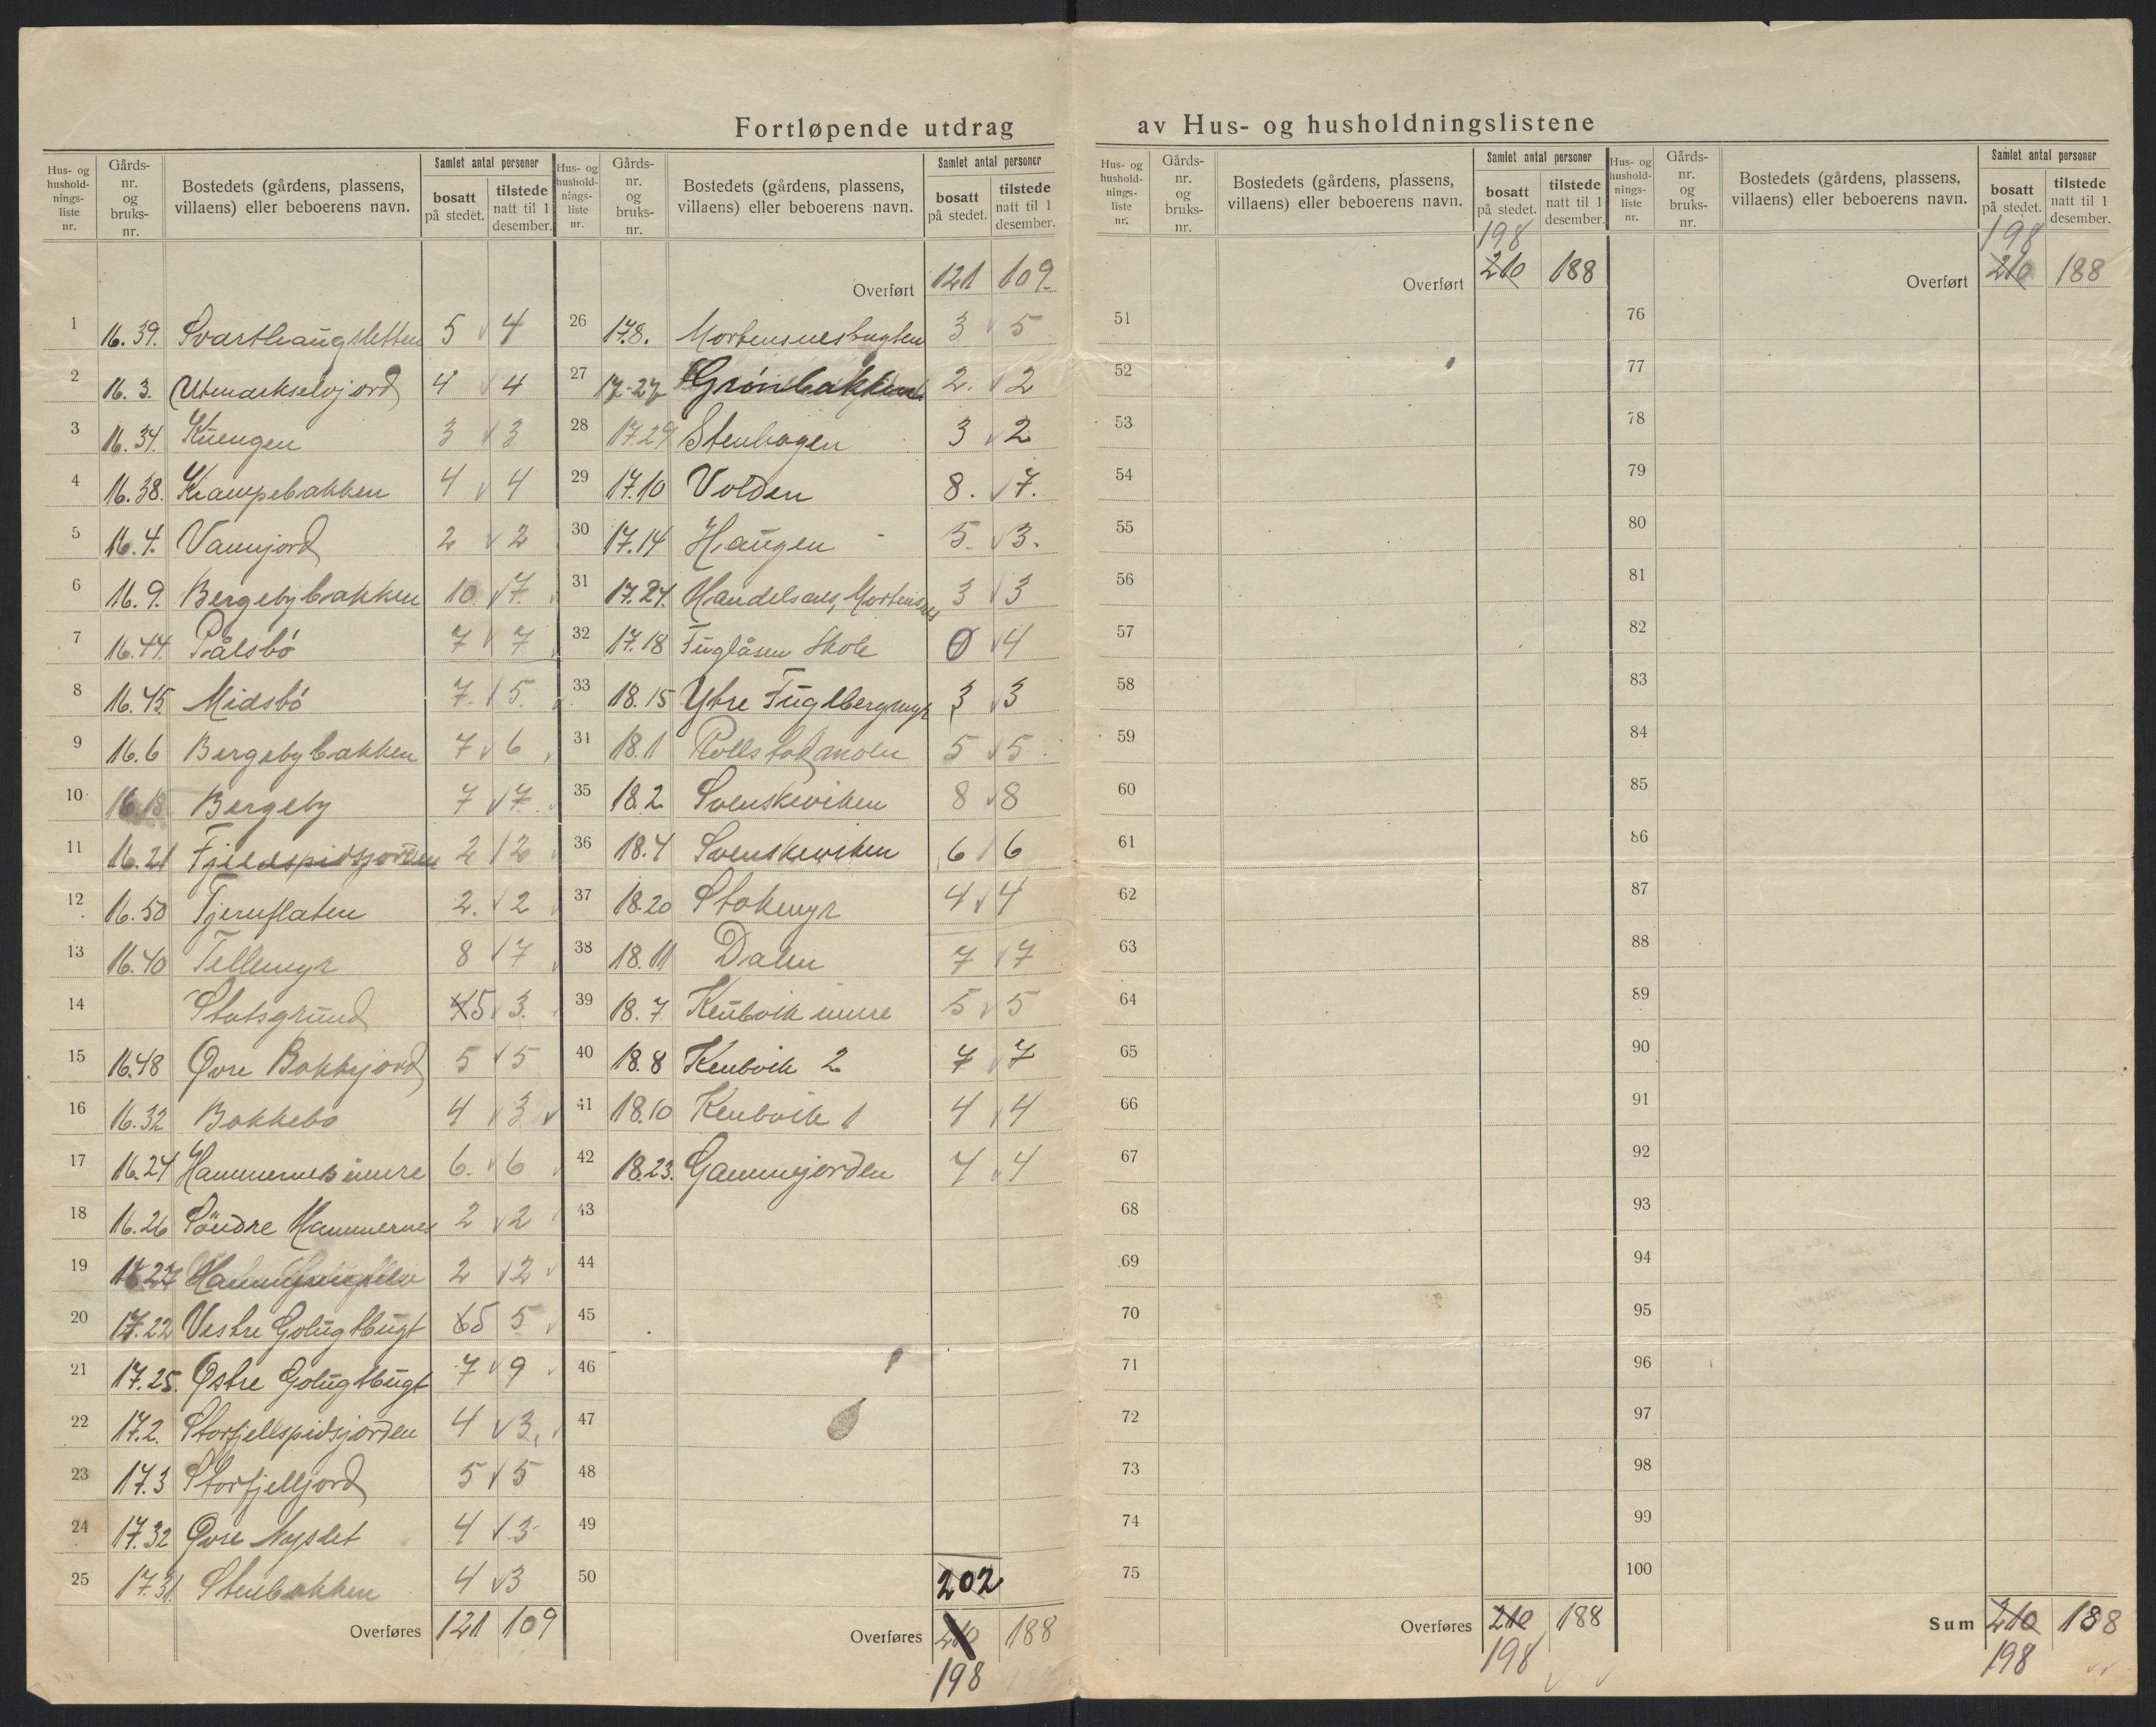 Fortløpende utdrag av Hus- og husholdningslistene
Hus- og hushold-nings-liste nr. | Gårds-nr. og bruks-nr. | Bostedets (gårdens, plassens, villaens) eller beboerens navn. | Samlet antal personer | bosatt på stedet. | tilstede natt til 1 desember.
1 16.39. Svarthaugsletten 5 4
2 16.3. Utmarkselvjord 4 4
3 16.34. Kuengen 3 3
4 16.38. Kampebakken 4 4
5 16.4. Vannjord 2 2
6 16.9. Bergebybakken 10 7
7 16.44. Pålsbö 7 7
8 16.45. Midsbö 7 5
9 16.6 Bergebybakken 7 6
10 16.18 Bergeby 7 7
11 16.21 Fjeldspidsjorden 2 2
12 16.50 Tjernflaten 2. 2
13 16.40 Tellemyr 8 7
14 Statsgrund 5 3.
15 16.48 Øvre Bakkejord 5 5
16 16.32 Bakkebo 4 3
17 16.24 Hammernes inure 6. 6
18 16.26 Söndre Hammernes 2 2
19 16.27 2 2
20 17.22 Vestre Golugtbugt 5 5
21 17.25. Østre Golugtbugt 7 9
22 17.2. Storfjellspidsjorden 4 3.
23 17.3 Storfjelljord 5 5
24 17.32 Øvre Nyslet 4 3
25 17.31 Stenbakken 4 3
Overføres 121 109
Hus- og hushold-nings-liste nr. | Gårds-nr. og bruks-nr. | Bostedets (gårdens, plassens, villaens) eller beboerens navn. | Samlet antal personer | bosatt på stedet. | tilstede natt til 1 desember.
Overført 121 109.
26 17.8. Mortensnesbugten 3 5
27 17.27 Grönbakken 2. 2
28 17.29 Stenhagen 3 2
29 17.10 Volden 8. 7.
30 17.14 Haugen 5. 3.
31 17.24. Handelsnes, Mortensnes 3 3
32 17.18 Fuglåsen Skole 0 4
33 18.15 Ytre Fuglbergmyr 3 3
34 18.1 5 5
35 18.2 Svenskeviken 8 8
36 18.4 Svenskeviken 6 6
37 18.20 Stokmyr 4 4
38 18.11 Dalen 7 7
39 18.7 Kenbvik inure 5 5
40 18.8 Kenbvik 2 7 7
41 18.10 Kenbvik 1 4 4
42 18.23. Gammejorden 4 4
43
44
45
46
47
48
49
50
202
Overføres 210 188
198
Hus- og hushold-nings-liste nr. | Gårds-nr. og bruks-nr. | Bostedets (gårdens, plassens, villaens) eller beboerens navn. | Samlet antal personer | bosatt på stedet. | tilstede natt til 1 desember.
198
Overført 210 188
51
52
53
54
55
56
57
58
59
60
61
62
63
64
65
66
67
68
69
70
71
72
73
74
75
Overføres 210 188
198
Hus- og hushold-nings-liste nr. | Gårds-nr. og bruks-nr. | Bostedets (gårdens, plassens, villaens) eller beboerens navn. | Samlet antal personer | bosatt på stedet. | tilstede natt til 1 desember.
198
Overført 210 188
76
77
78
79
80
81
82
83
84
85
86
87
88
89
90
91
92
93
94
95
96
97
98
99
100
Sum 210 188
198